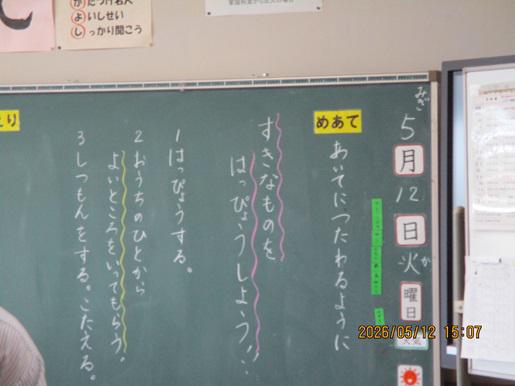 かたづけ名人
よいしせい
しっかり聞こう
みぎ
5月12日火曜日
か
めあて
あいてにつたわるように
すきなものを
はっぴょうしよう!!
1はっぴょうする。
2おうちのひとから
よいところをいってもらう!
3しつもんをする。こたえる。
2026/05/12 15:07